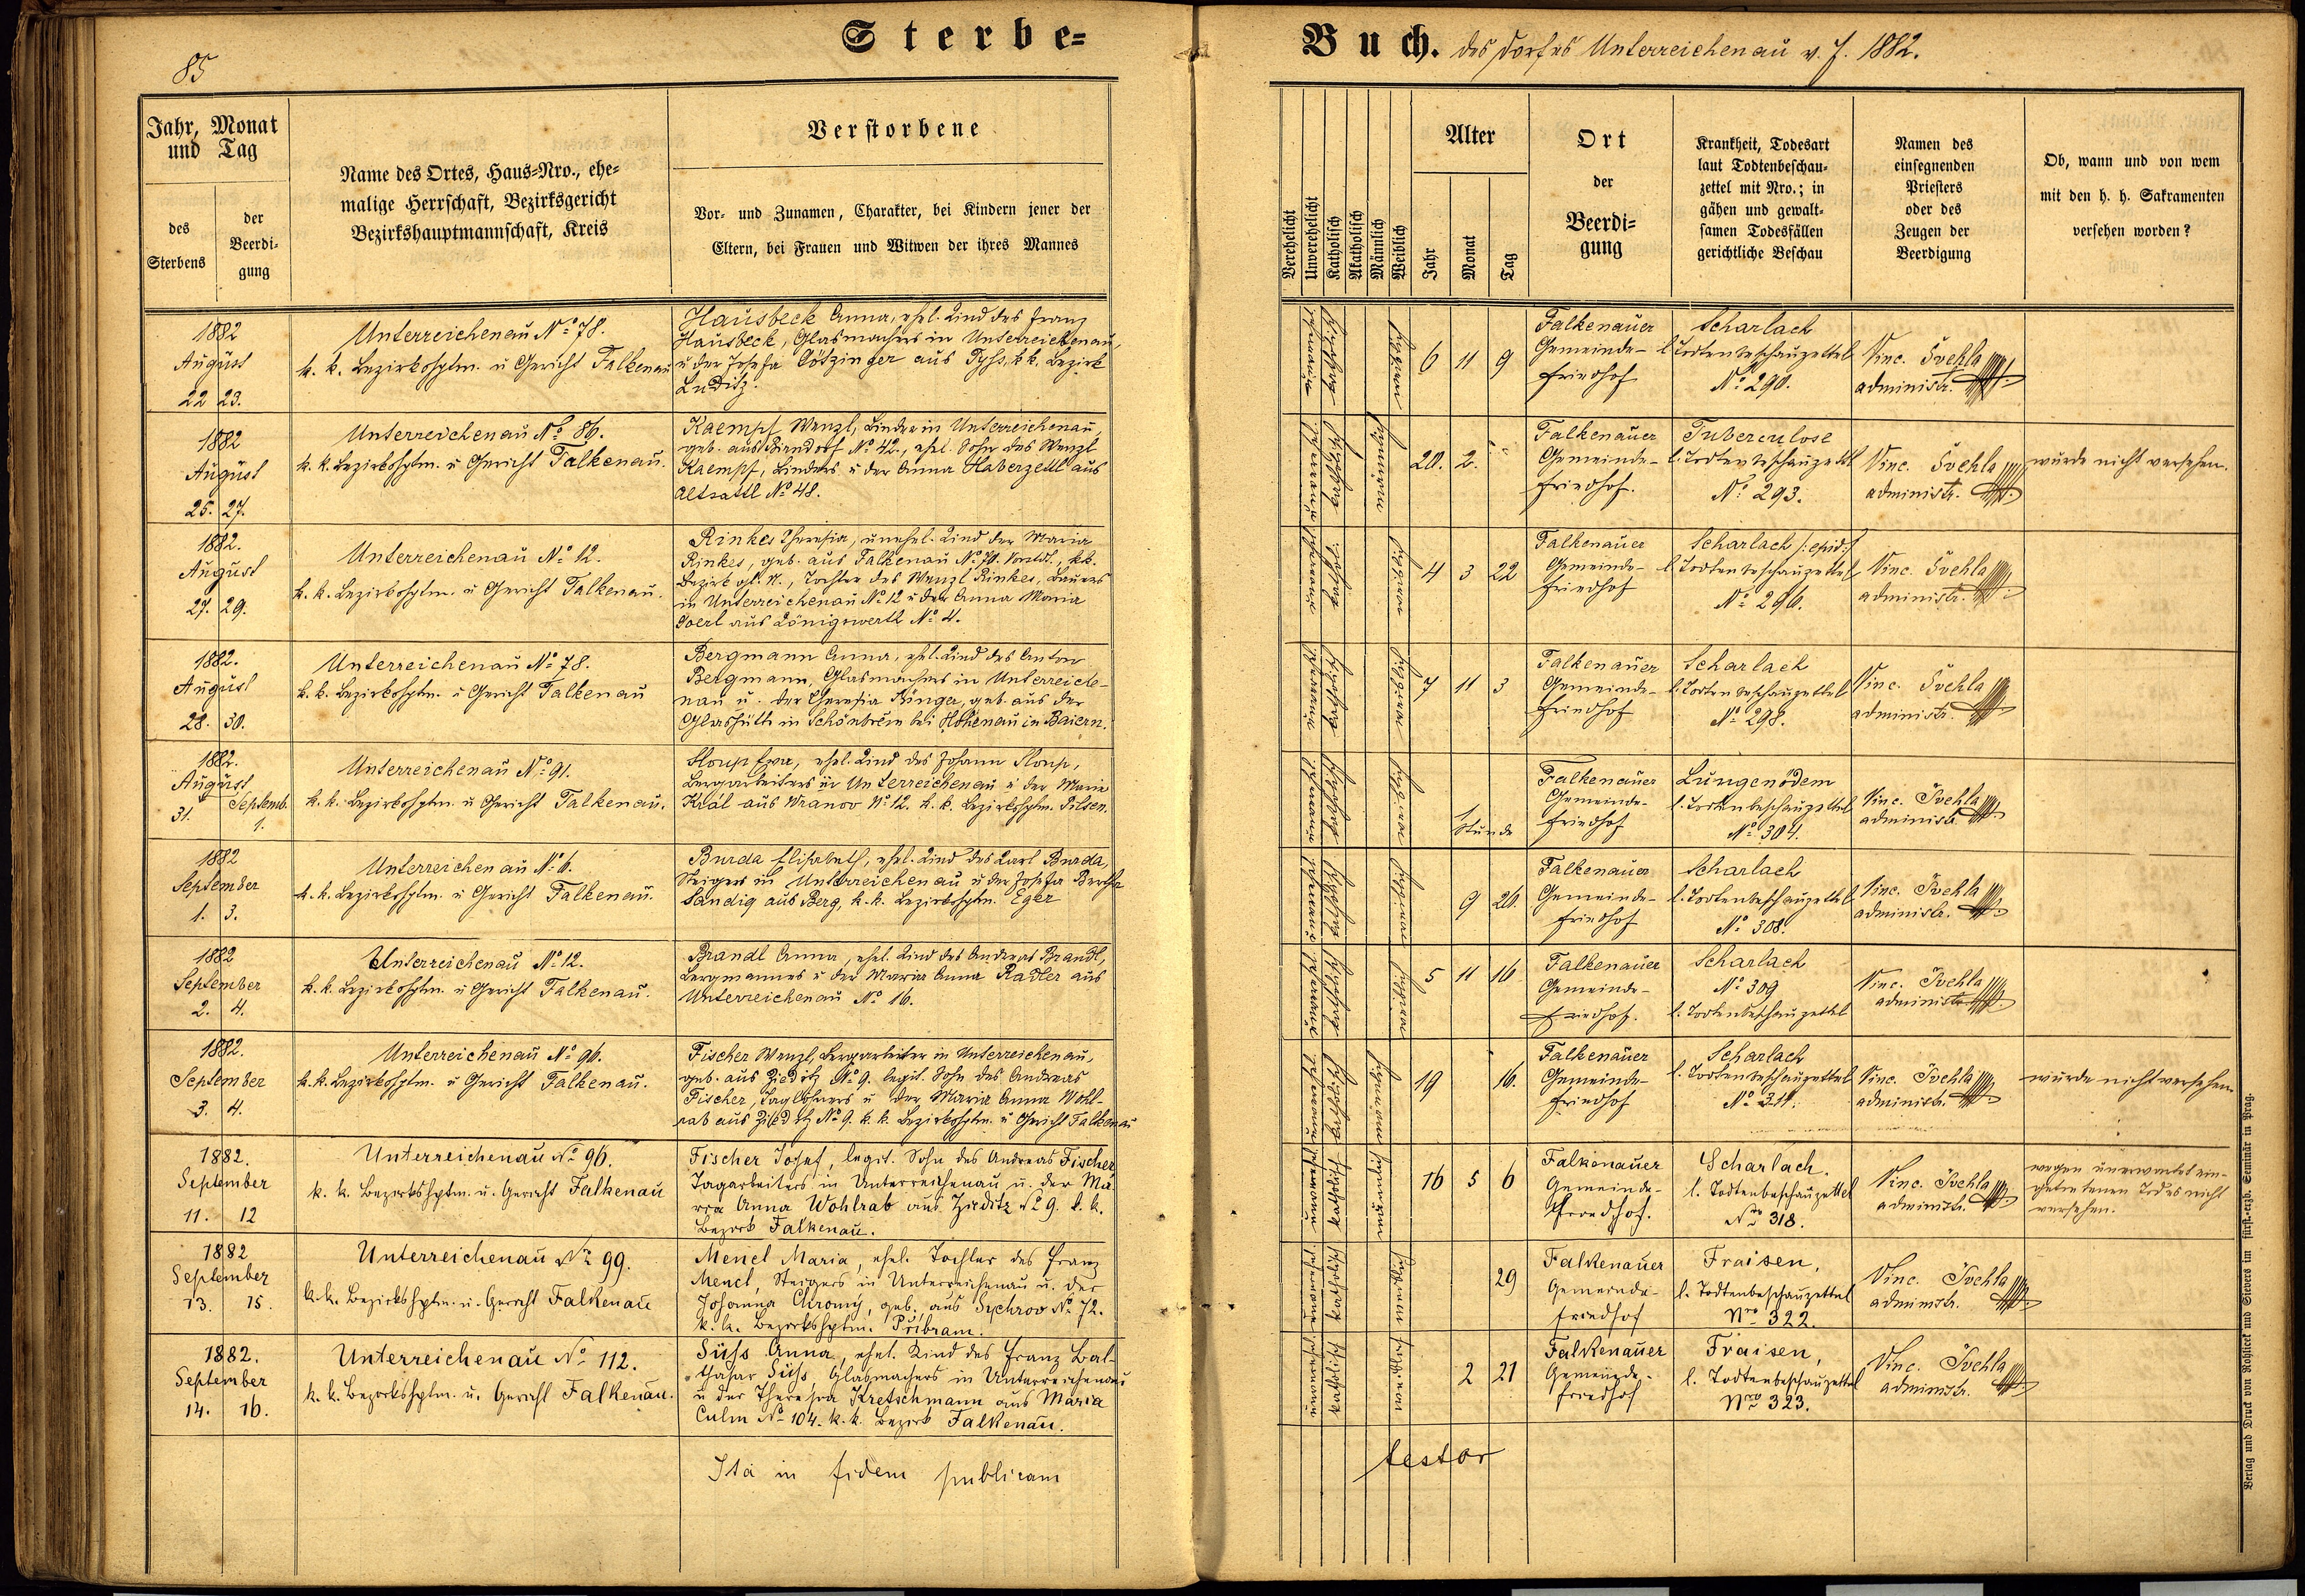 85
Sterbe=
Buch. des Dorfes Unterreichenau v. J. 1882.
Jahr, Monat
und Tag
des
Sterbens
der
Beerdi=
gung
Name des Ortes, Haus=Nro., ehe=
malige Herrschaft, Bezirksgericht
Bezirkshauptmannschaft, Kreis
Verstorbene
Vor= und Zunamen, Charakter, bei Kindern jener der
Eltern, bei Frauen und Witwen der ihres Mannes
Verehelicht
Unverehelicht
Katholisch
Akatholisch
Männlich
Weiblich
Alter
Jahr
Monat
Tag
Ort
der
Beerdi=
gung
Krankheit, Todesart
laut Todtenbeschau=
zettel mit Nro.; in
gähen und gewalt=
samen Todesfällen
gerichtliche Beschau
Namen des
einsegnenden
Priesters
oder des
Zeugen der
Beerdigung
Ob, wann und von wem
mit den h. h. Sakramenten
versehen worden?
1882
August
22 23.
Unterreichenau No 78.
k. k. Bezirkshptm. u Gericht Falkenau
Hausbeck Anna, ehel. Kind des Franz
Hausbeck, Glasmachers in Unterreichenau,
u der Josefa Götzinger aus k.k. Bezirk
Luditz.
6 11 9
Falkenauer
Gemeinde-
friedhof
Scharlach
l. Todtenbeschauzettel
No 290.
Vinc. Švehla
administr.
1882
August
25. 27.
Unterreichenau No 86.
k. k. Bezirkshptm. u Gericht Falkenau.
Kaempf Wenzl, Binder in Unterreichenau,
geb. aus Birndorf No 42., ehel. Sohn des Wenzl
Kaempf, Binders u der Anna Haberzettl aus
Altsattl No 48.
20. 2.
Falkenauer
Gemeinde-
friedhof.
Tuberculose
l. Todtenbeschauzettel
No 293.
Vinc. Švehla
administr.
wurde nicht versehen.
1882.
August
27. 29.
Unterreichenau No 12.
k. k. Bezirkshptm. u Gericht Falkenau.
Rinkes Theresia, unehel. Kind der Maria
Rinkes, geb. aus Falkenau No 70. k.k.
Bezirk gl. N., Tochter des Wenzl Rinkes, Bauers
in Unterreichenau No 12 u der Anna Maria
aus Königswerth No 4.
4 3 22
Falkenauer
Gemeinde-
friedhof
Scharlach /: epid :/
l. Todtenbeschauzettel
No 296.
Vinc. Švehla
administr.
1882.
August
28. 30.
Unterreichenau No 78.
k. k. Bezirkshptm. u Gericht Falkenau
Bergmann Anna, ehel. Kind des Anton
Bergmann, Glasmachers in Unterreiche-
nau u. der Theresia Rünger, geb. aus der
Glashütte in Schönbrün bei Hohenau in Baiern.
7 11 3
Falkenauer
Gemeinde-
friedhof
Scharlach
l. Todtenbeschauzettel
No 298.
Vinc. Švehla
administr.
1882.
August
31. Septemb.
1.
Unterreichenau No 91.
k. k. Bezirkshptm. u Gericht Falkenau.
Sloup Eva, ehel. Kind des Johann Sloup,
Bergarbeiters in Unterreichenau u der Marie
Král aus Wranov No 12. k. k. Bezirkshptm. Pilsen.
1
Stunde
Falkenauer
Gemeinde-
friedhof
Lungenödem
l. Todtenbeschauzettel
No 304.
Vinc. Švehla
administr.
1882
September
1. 3.
Unterreichenau No 6.
k. k. Bezirkshptm. u Gericht Falkenau.
Burda Elisabeth, ehel. Kind des Karl Burda,
Steigers in Unterreichenau u der Josefa Bertha
Sandig aus Berg, k. k. Bezirkshptm. Eger
9 26.
Falkenauer
Gemeinde-
friedhof
Scharlach
l. Todtenbeschauzettel
No 308.
Vinc. Švehla
administr.
1882
September
2. 4.
Unterreichenau No 12.
k. k. Bezirkshptm. u Gericht Falkenau.
Brandl Anna, ehel. Kind des Andreas Brandl,
Bergmannes u der Maria Anna Radler aus
Unterreichenau No 16.
5 11 16
Falkenauer
Gemeinde-
friedhof.
Scharlach
No 309
l. Todtenbeschauzettel
Vinc. Švehla
administr.
1882.
September
3. 4.
Unterreichenau No 96.
k. k. Bezirkshptm. u Gericht Falkenau.
Fischer Wenzl, Bergarbeiter in Unterreichenau,
geb. aus Zieditz No 9. legit. Sohn des Andreas
Fischer, Taglöhners u der Maria Anna Wohl-
rab aus Zieditz No 9. k. k. Bezirkshptm. u Gericht Falkenau
19 16.
Falkenauer
Gemeinde-
friedhof
Scharlach
l. Todtenbeschauzettel
No 311.
Vinc. Švehla
administr.
wurde nicht versehen.
1882.
September
11. 12
Unterreichenau No 96.
k. k. Bezirkshptm. u. Gericht Falkenau
Fischer Josef, legit. Sohn des Andreas Fischer
Tagarbeiters in Unterreichenau u. der Ma-
ria Anna Wohlrab aus Zieditz No 9. k. k.
Bezirk Falkenau.
16 5 6
Falkenauer
Gemeinde-
friedhof.
Scharlach.
l. Todtenbeschauzettel
Nro 318.
Vinc. Švehla
administr.
wegen unerwartet ein-
getretenen Todes nicht
versehen.
1882
September
13. 15.
Unterreichenau No 99.
k. k. Bezirkshptm. u. Gericht Falkenau
Mencl Maria, ehel. Tochter des Franz
Mencl, Steigers in Unterreichenau u. der
Johanna Chromý, geb. aus Sychrov No 72.
k. k. Bezirkshptm. Přibram.
29
Falkenauer
Gemeinde-
friedhof
Fraisen,
l. Todtenbeschauzettel
Nro 322.
Vinc. Švehla
administr.
1882.
September
14. 16.
Unterreichenau No 112.
k. k. Bezirkshptm. u. Gericht Falkenau.
Süss Anna, ehel. Kind des Franz Bal-
thasar Süss, Glasmachers in Unterreichenau
u der Theresia Kretschmann aus Maria
Culm No 104. k. k. Bezirk Falkenau.
2 21
Falkenauer
Gemeinde-
friedhof
Fraisen,
l. Todtenbeschauzettel
Nro 323.
Vinc. Švehla
administr.
Ita in fidem publicam
testor
Verlag und Druck von Rohlicek und Sievers im fürst.-erzb. Seminär in Prag.